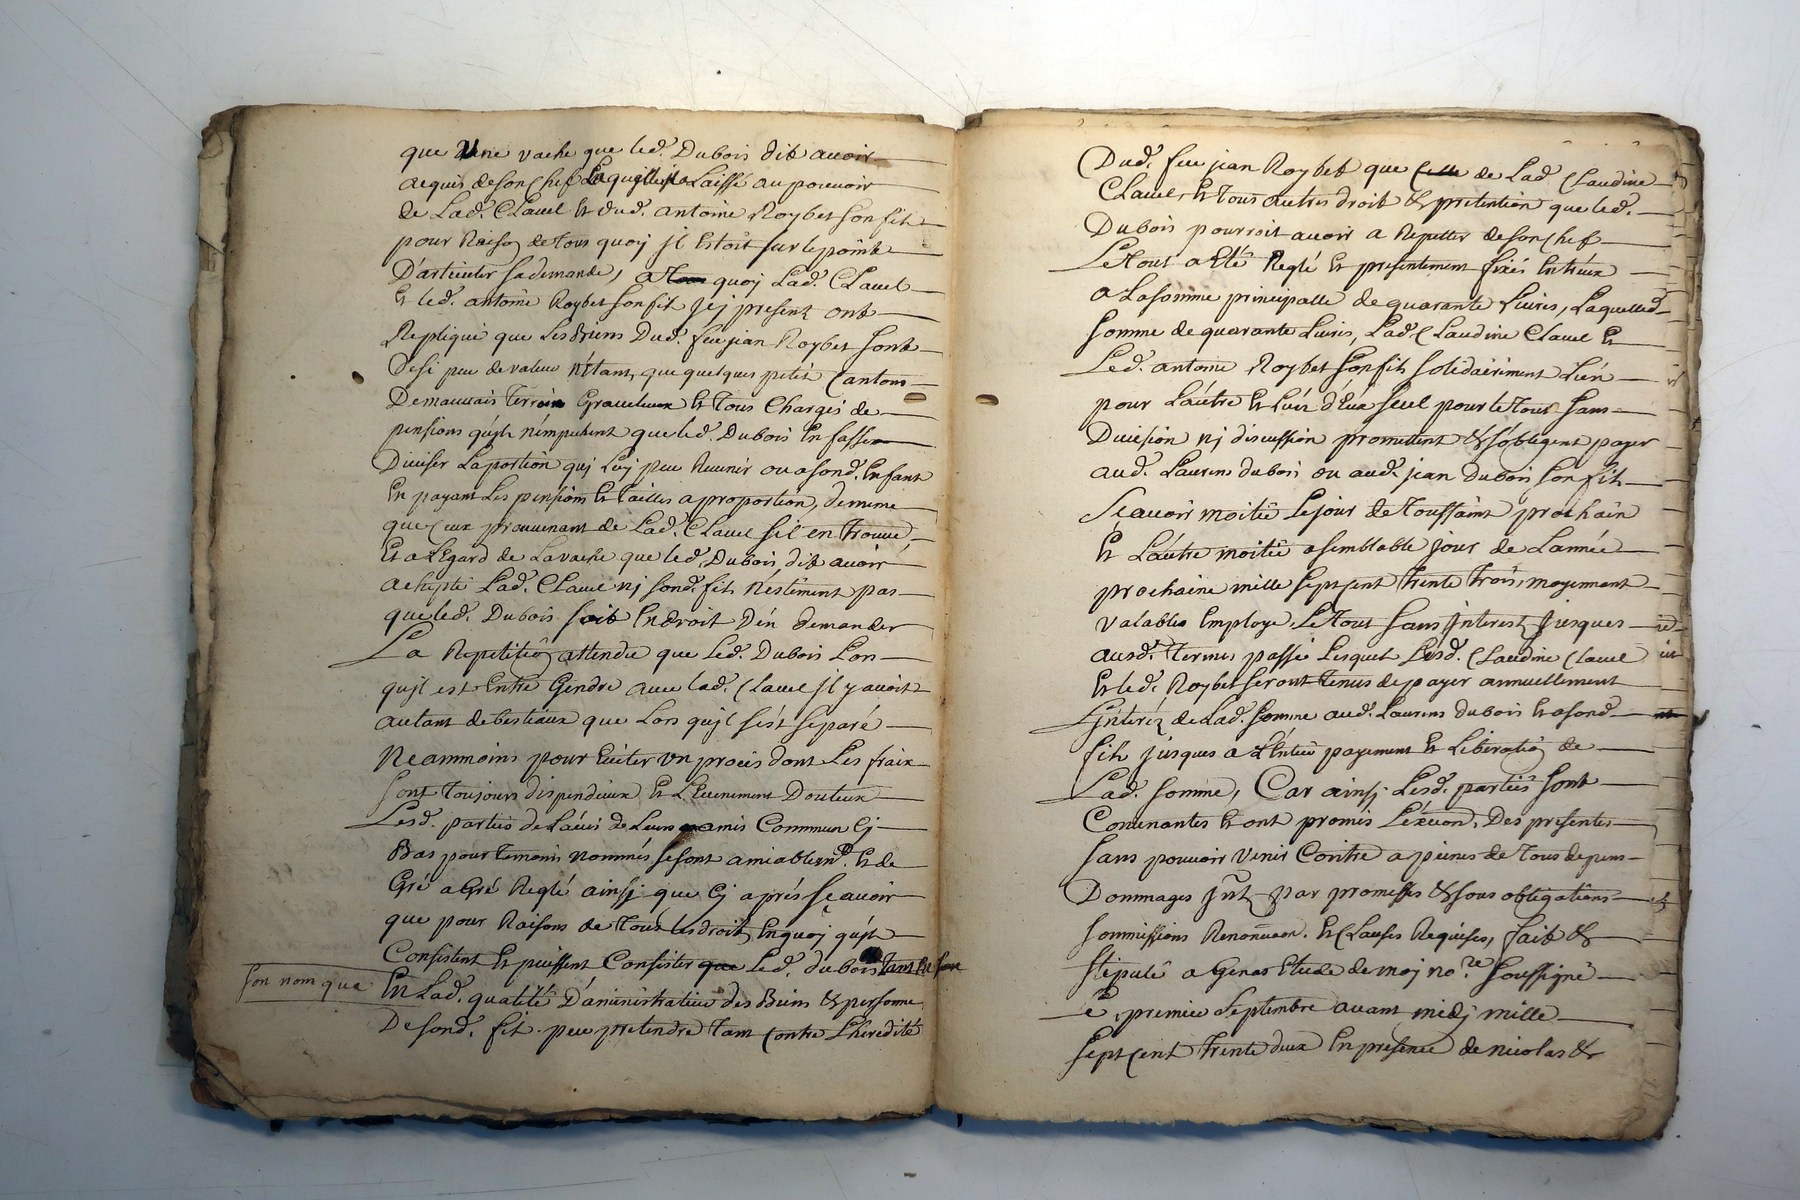 que Une vache que led. Dubois dit avoir
acquis de son chef Laquelle Laissé au pouvoir
de Lad. Clavel et dud. antoine Roybet son fils
pour Raison de tous quoy jl Estoit sur le point
D'articuler sa demande, a quoy Lad. Clavel
Et led. antoine Roybet son fils jcy present ont
Repliqué que Les Biens Dud. feu jean Roybet sont
De si peu de valeur N'étant que quelques petit Cantons
De mauvais terrein Graveleux Et tous Chargés de
pensions qu'jls n'empechent que led. Dubois En fasse
Diviser La portion quj Luy peu Revenir ou a sond. Enfant
En payant Les pensions Et tailles a proportion, de meme
que Ceux provenant de Lad. Clavel sil en trouve
Et a L'Egard de La vache que led. Dubois dit avoir
achepté Lad. Clavel nj sond. fils n'estiment pas
que led. Dubois soit En droit D'en demander
La Repetition attendu que Led. Dubois Lors
qujl est Entré Gendre avec lad. Clavel jl y avoit
autant de bestiaux que Lors qujl s'est separé
Neammoins pour Eviter un procès dont Les fraix
sont toujours dispendieux Et L'Evenement Douteux
Lesd. parties de L'avis de Leurs amis Commun Cj
Bas pour temoins nommés se sont amiablemt. Et de
Gré a Gré Reglé ainsj que Cj aprés sçavoir
que pour Raisons de tous les droits En quoj qu'jls
Consistent Et puissent Consister que Led. dubois tant En son
son nom que
En Lad. qualité D'aministrateur des Biens & personne
De sond. fils peu pretendre tant Contre L'heredité
Dud. feu jean Roybet que Celle de Lad Claudine
Clavel, Et tous autres droit & pretention que led.
Dubois pourroit avoir a Repetter de son chef
Le tout a Eté Reglé Et presentement fixés Entréux
a La somme principalle de quarante Livres, Laquelled.
somme de quarante Livres, Lad. Claudine Clavel Et
Led. antoine Roybet son fils solidairement L'un
pour L'autre Et L'un d'Eux seul pour le tout sans
Division nj discussion promettent & s'obligent payer
aud. Laurens dubois ou aud. jean dubois son fils
Sçavoir moitié Le jour de toussaint prochain
Et L'autre moitié a semblable jour de L'année
prochaine mille sept cent trente trois, moyennant
valable Employe, Le tout sans Jnterest jusques
ausd. termes passé Lesquel Lesd. Claudine Clavel
Et led. Roybet seront tenus de payer annuellement
L'jnterêz de Lad. somme aud. Laurens dubois Et a sond.
fils jusques a L'Entier payement Et Liberation de
Lad. somme, Car ainsj Lesd. parties sont
Convenantes Et ont promis L'exéuon. Des presentes
sans pouvoir venir Contre a peines de tous depens
Dommages jnt par promesses & sous obligations
sommissions Renonuaon. Et Clauses Requises, fait &
stipulé a Genas Etude de moj nore. soussigné
Le premier septembre avant midj mille
sept cent trente deux En presence de nicolas &